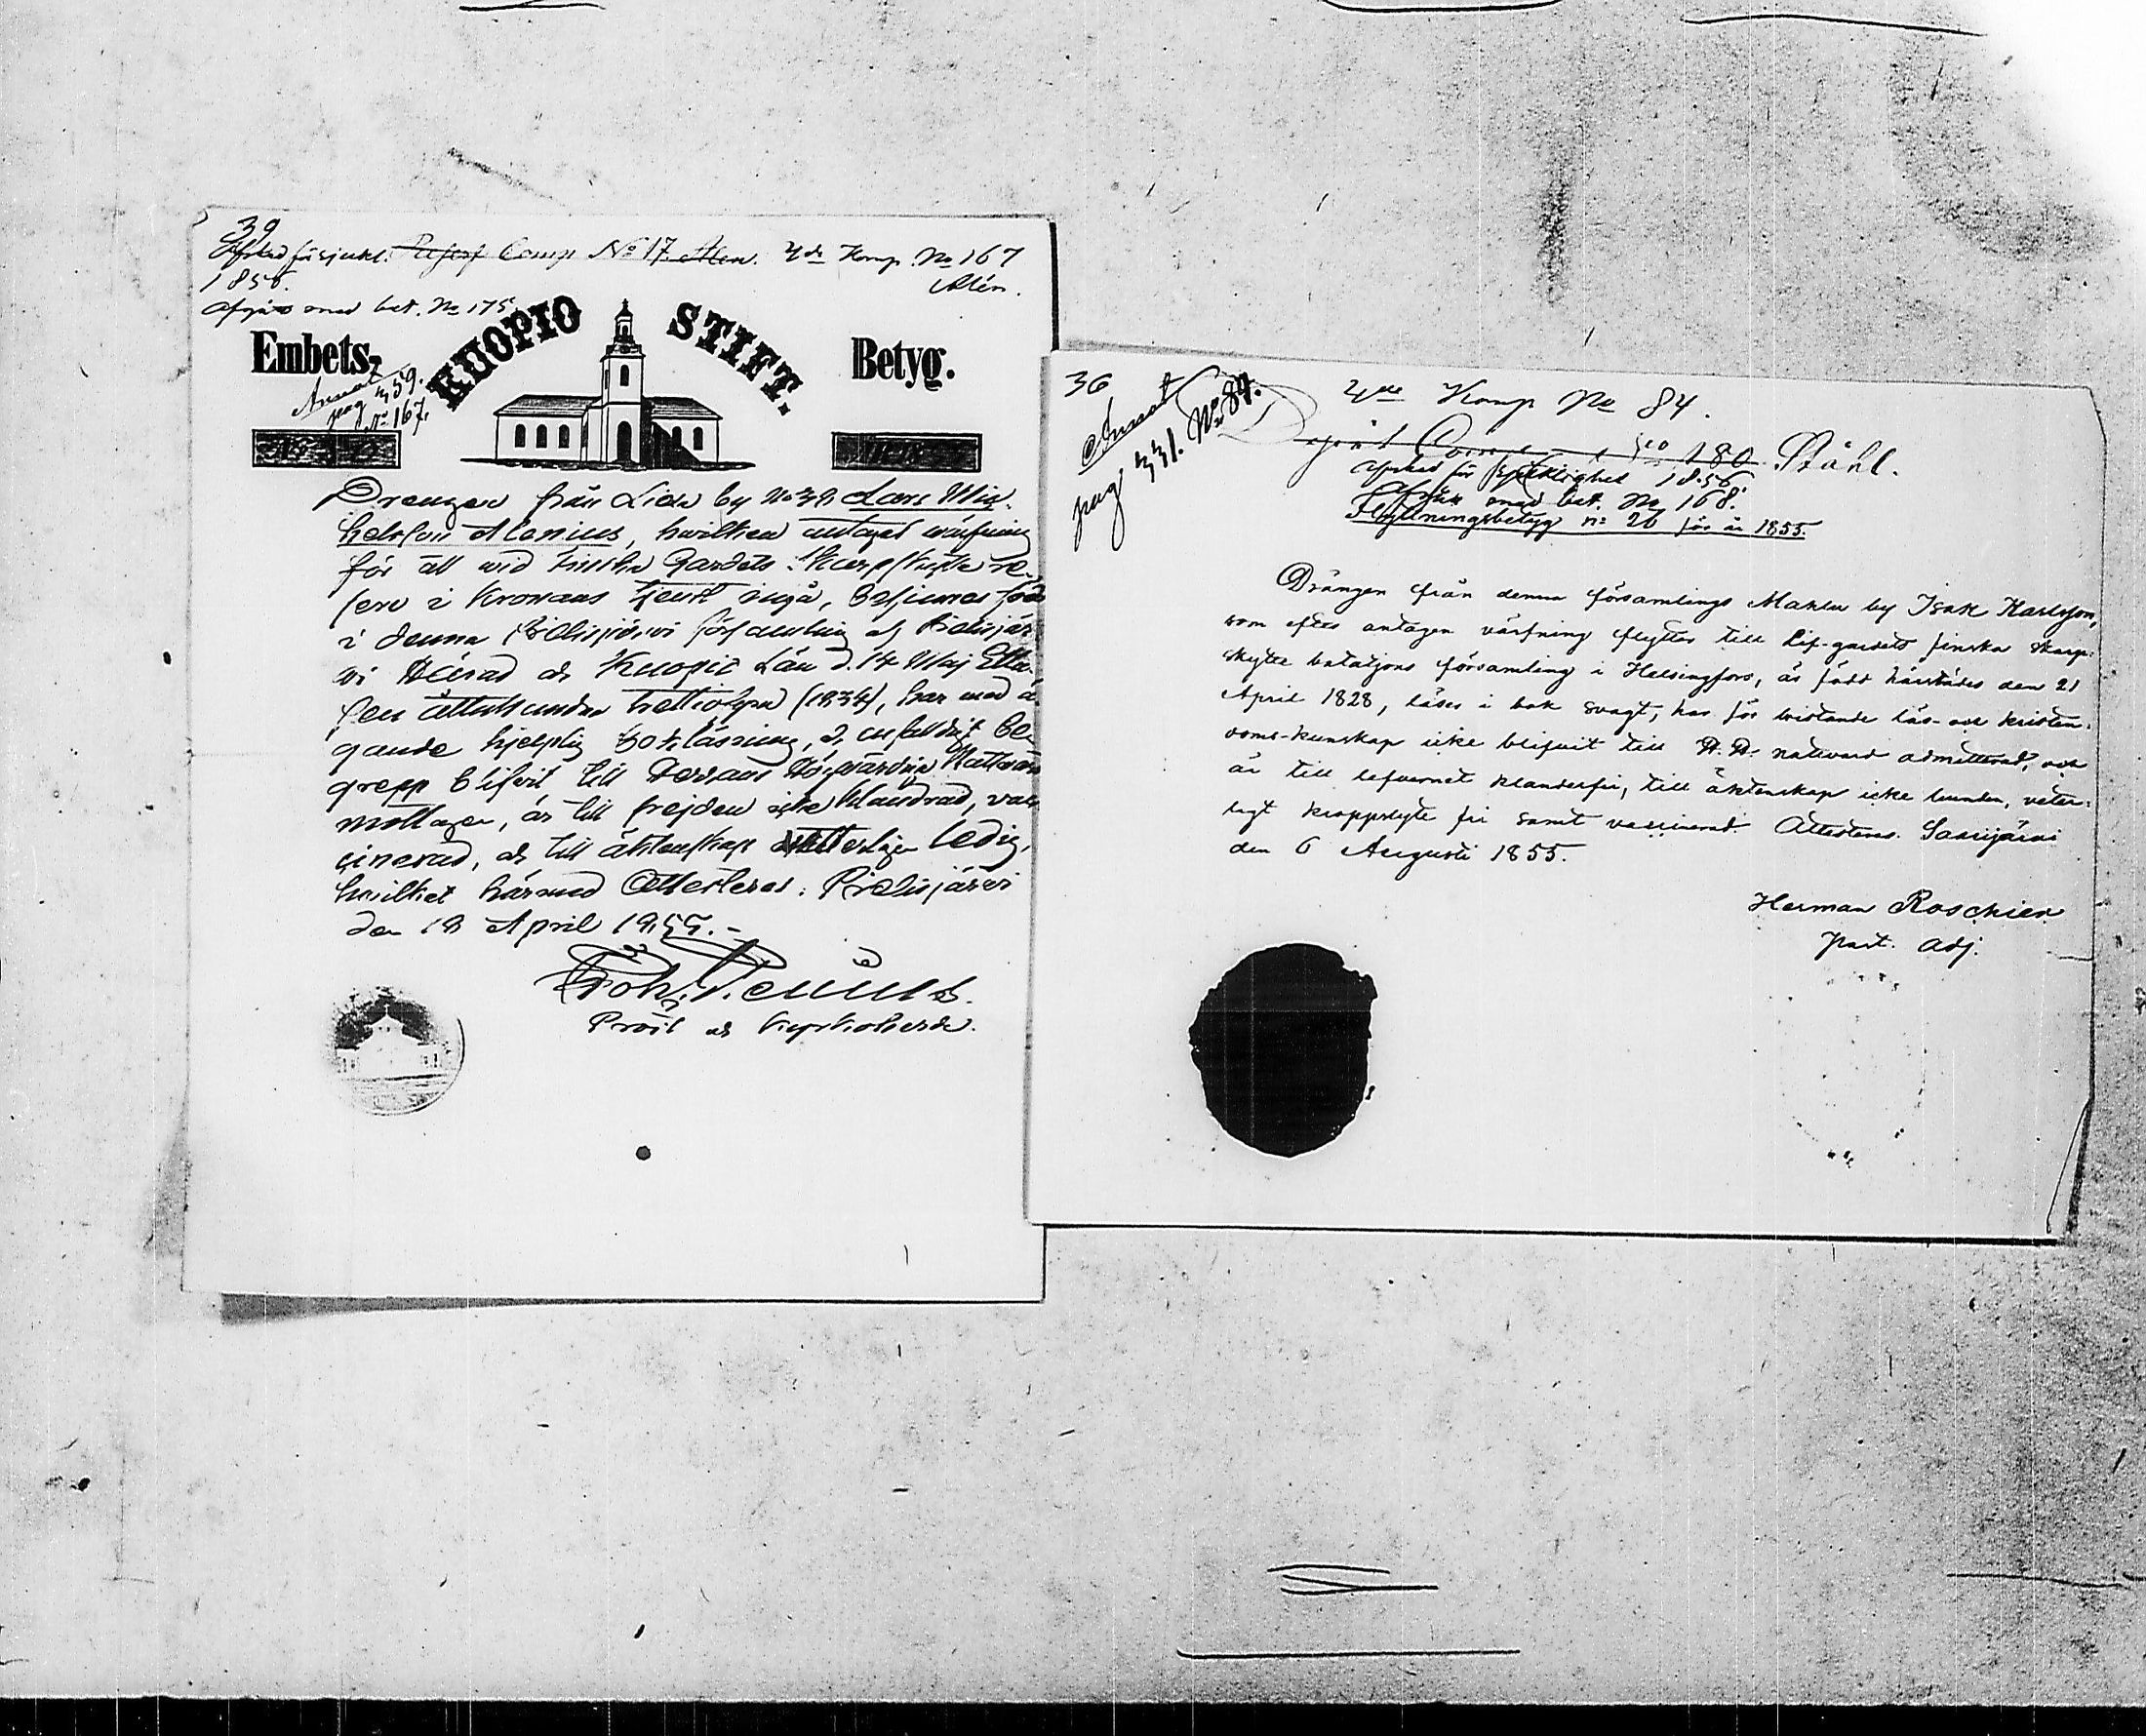 39
Afsked för sjukl. Reserf Comp No 17. Alen. 4de Komp. No 167
1856. Alén.
Afgått med bet. No 175
KUOPIO STIFT.
Embets- Betyg.
Annot
pag 359.
No 167.
Drengen från Lieksa by No 39 Lars Mic-
helsson Alenius, hwilken antagit wärfning
för att wid Finska Gardets Skarpskytte re-
serv i Kronans tjenst ingå, betjenas född
i denna Pielisjärvi församling af Pielisjär-
vi Härad och Kuopio Län d. 14 Maj Ettu-
sen åttahundra trettiofyra (1834), har med ä-
gande hjelplig bokläsning, och enfaldigt be-
grepp blifvit till Herrans Högvärdiga Nattvard
mottagen, är till frejden icke klandrad, vac-
cinerad, och till äktenskap ledig,
hvilket härmed Attesteras: Pielisjärvi
den 18 April 1855.-
Joh. Stenius.
Prost och Kyrkoherde.
36
Annot
pag 331. No 84.
4de Komp No 84.
Depôt Comp No 180 Ståhl.
Afsked för sjuklighet 1856.
Afgått med bet. No 168.
Flyttningsbetyg no 26 för år 1855.
Drängen från denna församlings Mahlu by Isak Karlsson,
som efter antagen värfning flyttar till Lif-gardets finska skarp-
skytte bataljons församling i Helsingfors, är född härstädes den 21
April 1828, läser i bok svagt, har för bristande läs- och kristen-
doms-kunskap icke blifvit till H. H. nattvard admitterad, och
är till lefvernet klanderfri, till äktenskap icke bunden, veter-
ligt kroppslyte fri samt vaccinerad. Attesteras. Saarijärvi
den 6 Augusti 1855.
Herman Roschier
past. adj.